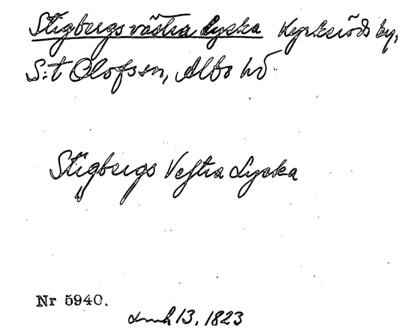 Stigbergs västra Lycka Kyrkeröds by,
S:t Olofs sn, Albo hd
Stigbergs Vestra Lycka
Nr 5940.
13, 1823